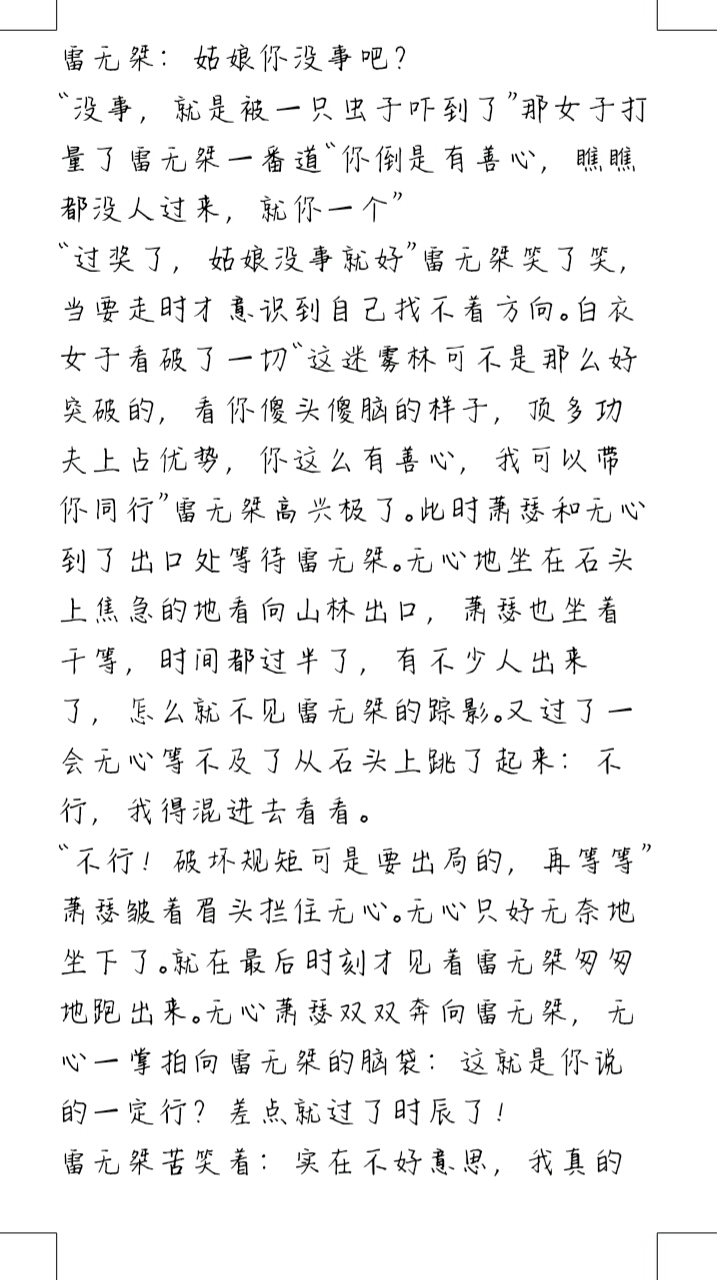 雷无桀：姑娘你没事吧？
“没事，就是被一只虫子吓到了”那女子打
量了雷无桀一番道“你倒是有善心，瞧瞧
都没人过来，就你一个”
“过奖了，姑娘没事就好”雷无桀笑了笑，
当要走时才意识到自己找不着方向。白衣
女子看破了一切“这迷雾林可不是那么好
突破的，看你傻头傻脑的样子，顶多功
夫上占优势，你这么有善心，我可以带
你同行”雷无桀高兴极了。此时萧瑟和无心
到了出口处等待雷无桀。无心地坐在石头
上焦急的地看向山林出口，萧瑟也坐着
干等，时间都过半了，有不少人出来
了，怎么就不见雷无桀的踪影。又过了一
会无心等不及了从石头上跳了起来：不
行，我得混进去看看。
“不行！破坏规矩可是要出局的，再等等”
萧瑟皱着眉头拦住无心。无心只好无奈地
坐下了。就在最后时刻才见着雷无桀匆匆
地跑出来。无心萧瑟双双奔向雷无桀，无
心一掌拍向雷无桀的脑袋：这就是你说
的一定行？差点就过了时辰了！
雷无桀苦笑着：实在不好意思，我真的